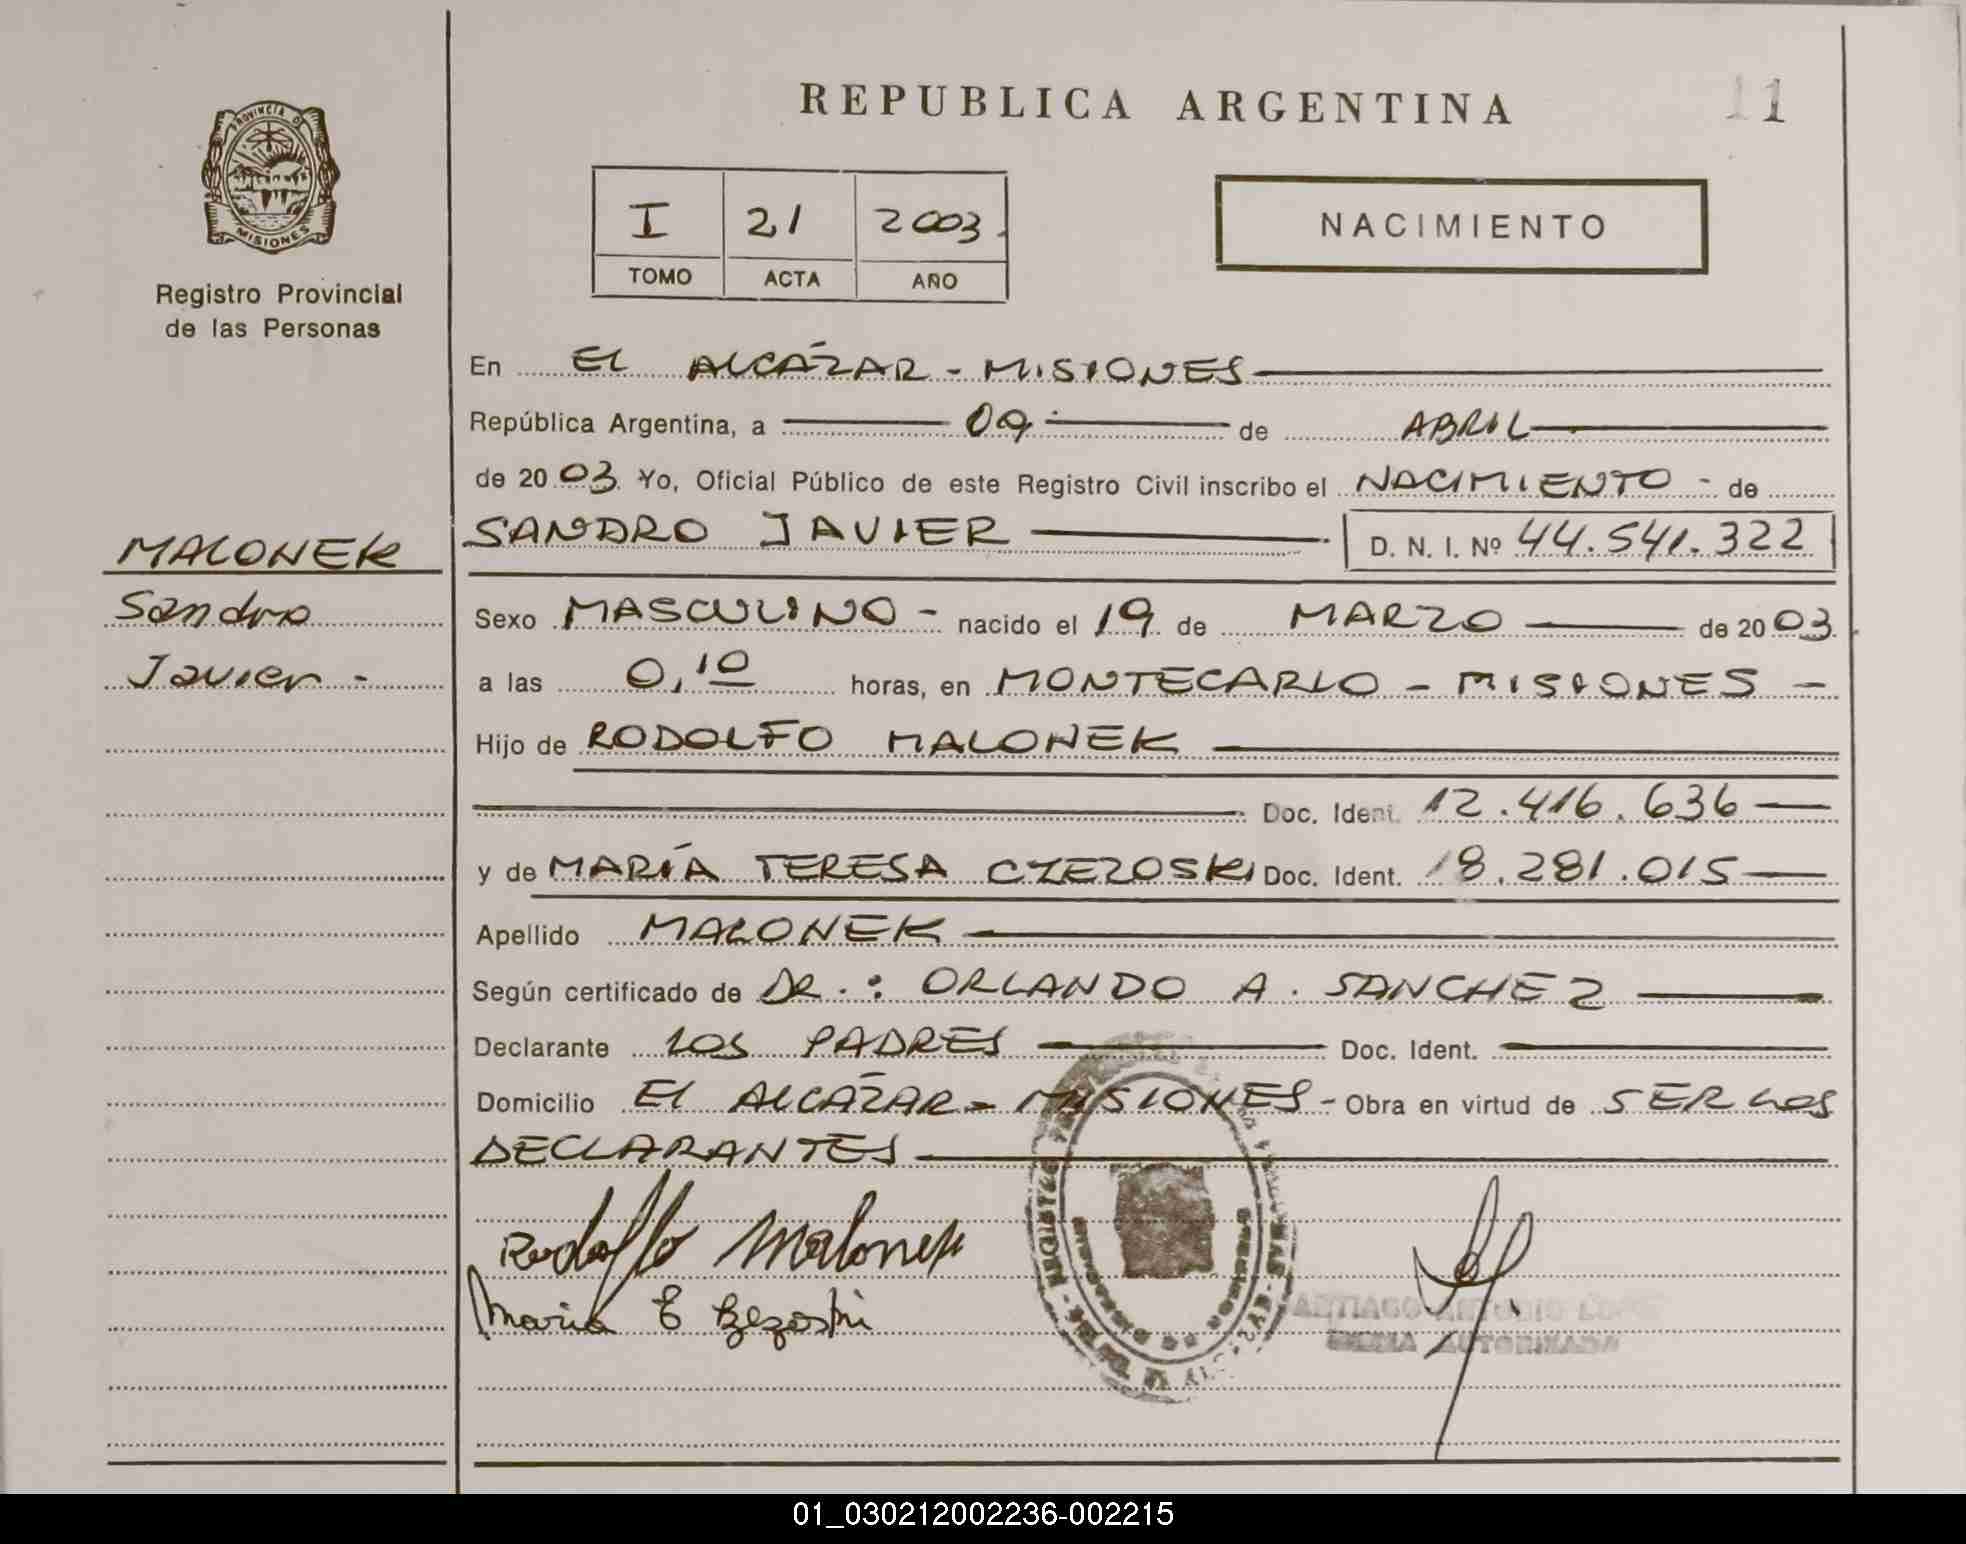 REPUBLICA ARGENTINA
11
PROVINCIA D
MISIONES
Registro Provincial
de las Personas
I 21 2003
TOMO ACTA AÑO
NACIMIENTO
En EL ALCÁZAR - MISIONES
República Argentina, a 09 de ABRIL
de 2003 Yo, Oficial Público de este Registro Civil inscribo el NACIMIENTO - de
SANDRO JAVIER D. N. I. Nº 44.541.322
MALONEK
Sandro
Javier -
Sexo MASCULINO - nacido el 19 de MARZO de 2003
a las 0,10 horas, en MONTECARLO - MISIONES -
Hijo de RODOLFO MALONEK
Doc. Ident. 12.416.636
y de MARÍA TERESA CZEZOSKI Doc. Ident. 18.281.015
Apellido MALONEK
Según certificado de DR.: ORLANDO A. SANCHEZ
Declarante LOS PADRES Doc. Ident.
Domicilio El ALCÁZAR - MISIONES - Obra en virtud de SER LOS
DECLARANTES
Rodolfo Malonek
Maria
01_030212002236-002215